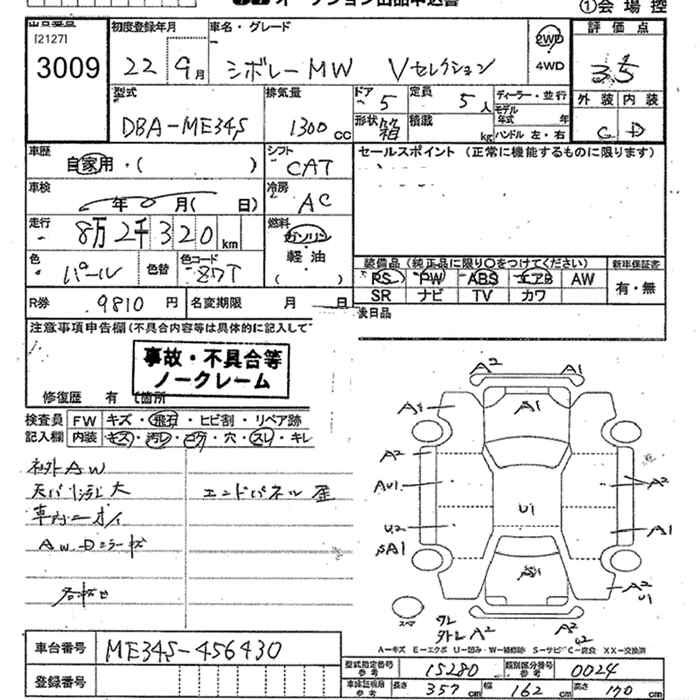 オークション出品申込書
①会場控
[2127]
3009
初度登録年月
22 9月
車名・グレード
シボレーMW Vセレクション
2WD
4WD
評価点
3.5
外装 内装
C D
型式
DBA-ME34S
排気量
1300cc
ドア
5
形状
箱
定員
5人
積載
kg
ディーラー・並行
モデル年式 年
ハンドル 左・右
車歴
自家用・( )
シフト
CAT
セールスポイント (正常に機能するものに限ります)
車検
年 月( 日)
冷房
AC
走行
8万2千320km
燃料
ガソリン
軽油
( )
色
パール
色替
色コード
装備品(純正品に限り○をつけてください)
PS PW ABS エアB AW
SR ナビ TV カワ
新車保証書
有・無
R券 9810円
名変期限 月 日
後日品
注意事項申告欄(不具合内容等は具体的に記入して
事故・不具合等
ノークレーム
修復歴 有 (箇所
検査員 FW キズ・飛石・ヒビ割・リペア跡
記入欄 内装 キズ・汚レ・コゲ・穴・スレ・キレ
社外AW
天バリ汚レ大
エンドパネル歪
車内ニオイ
A2 A1
A1 A1
A2
AU1 A2
U1
U2 A1
SA1
A2
U1
スペア
A2 A2
A-キズ E-エクボ U-凹み W-補修跡 S-サビ C-腐食 XX-交換済
車台番号 ME34S-456430
登録番号
型式指定番号 参考 15280
類別区分番号 参考 0024
車検証明細 参考 長さ 357cm 幅 162cm 高さ 170cm